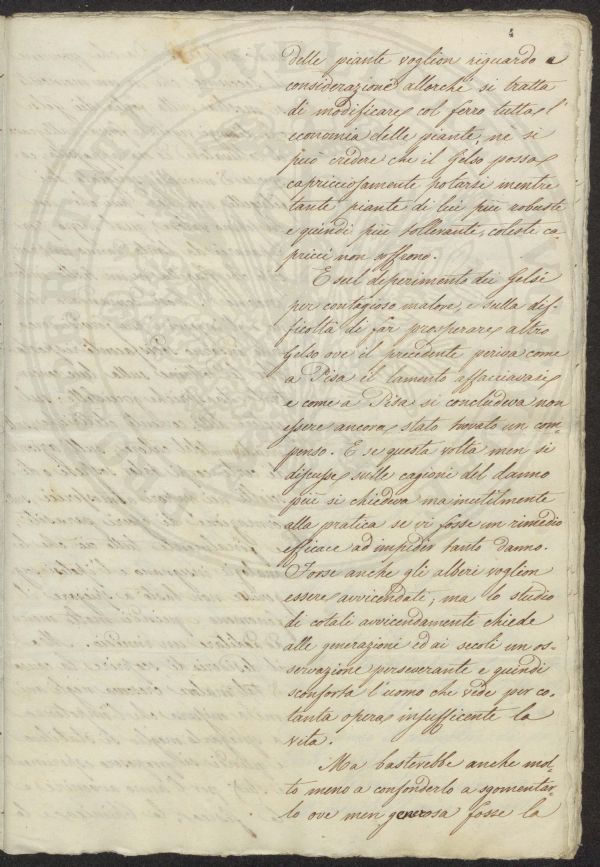 4
delle piante voglion riguardo e
considerazione allorchè si tratta
di modificare col ferro tutta l'
economia delle piante, nè si
può credere che il Gelso possa
capricciosamente potarsi mentre
tante piante di lui più robuste
e quindi più tolleranti, coteste ca
pricci non soffrono.
E sul deperimento dei Gelsi
per contagioso malore, e sulla dif-
ficoltà di far prosperare altro
Gelso ove il precedente periva come
a Pisa il lamento affacciavasi
e come a Pisa si concludeva non
essere ancora stato trovato un com-
penso. E se questa volta men si
discusse sulle cagioni del danno
più si chiedeva ma inutilmente
alla pratica se vi fosse un rimedio
efficace ad impedir tanto danno.
Forse anche gli alberi voglion
essere avvicendati; ma lo studio
di cotali avvicendamenti chiede
alle generazioni ed ai secoli un os-
servazione perseverante e quindi
sconforta l'uomo che vede per co-
tanta opera insufficente la
vita.
Ma basterebbe anche mol
to meno a confonderlo a sgomentar-
lo ove men generosa fosse la